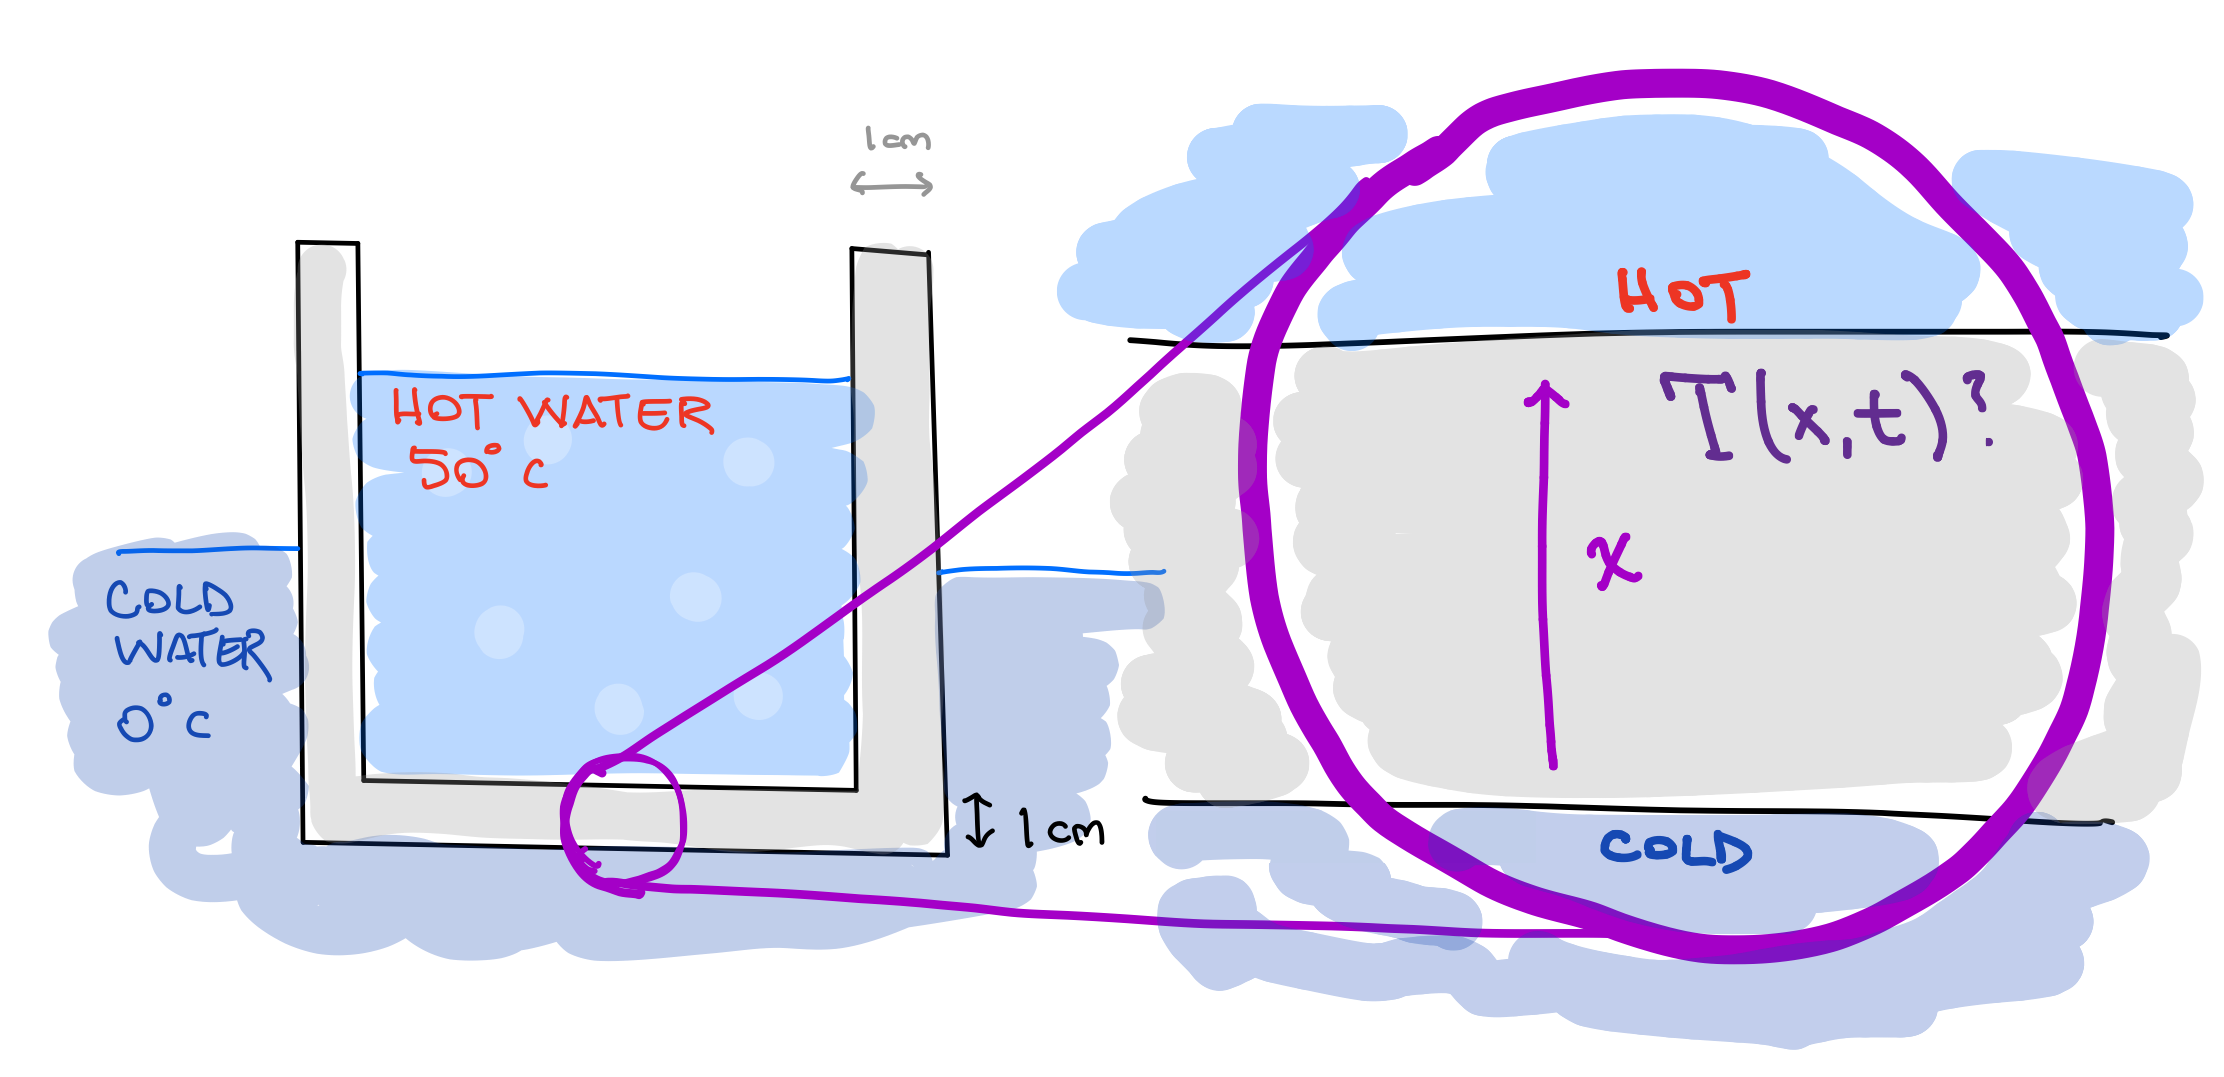 1cm
HOT WATER
50°C
COLD
WATER
0°C
1 cm
HOT
T(x,t)?
x
COLD